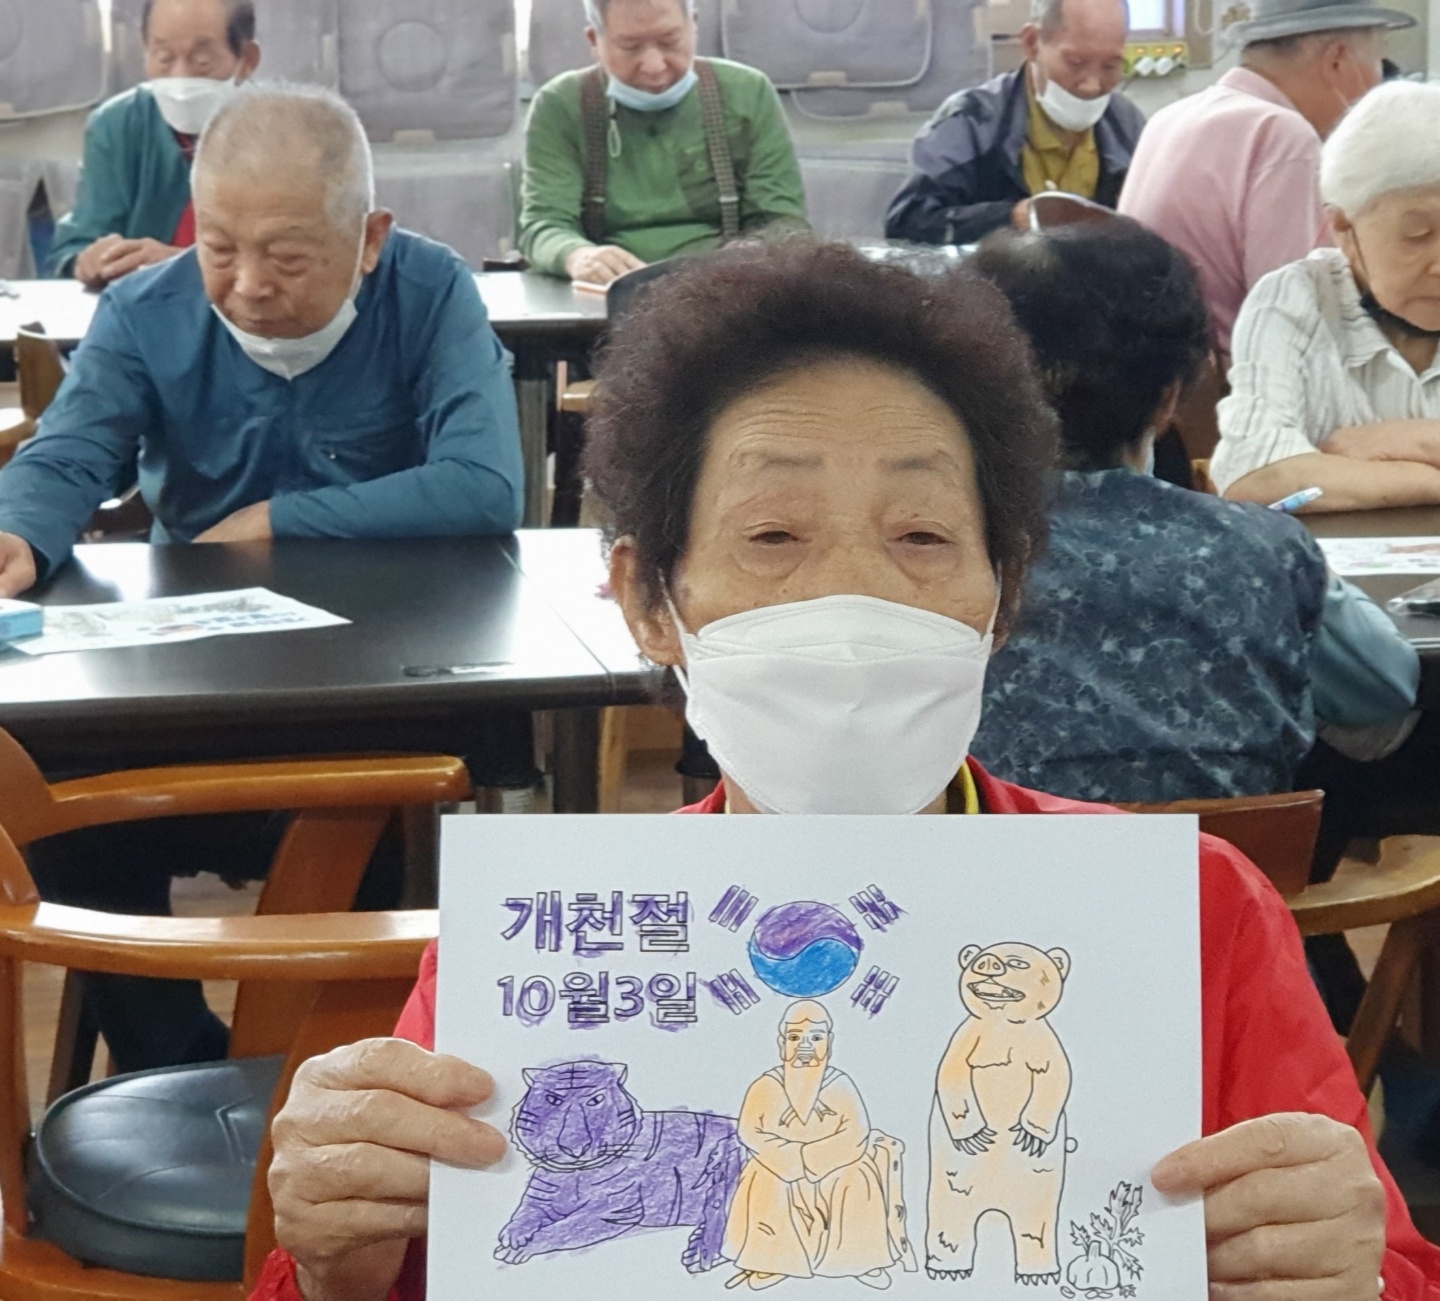 개천절
10월3일